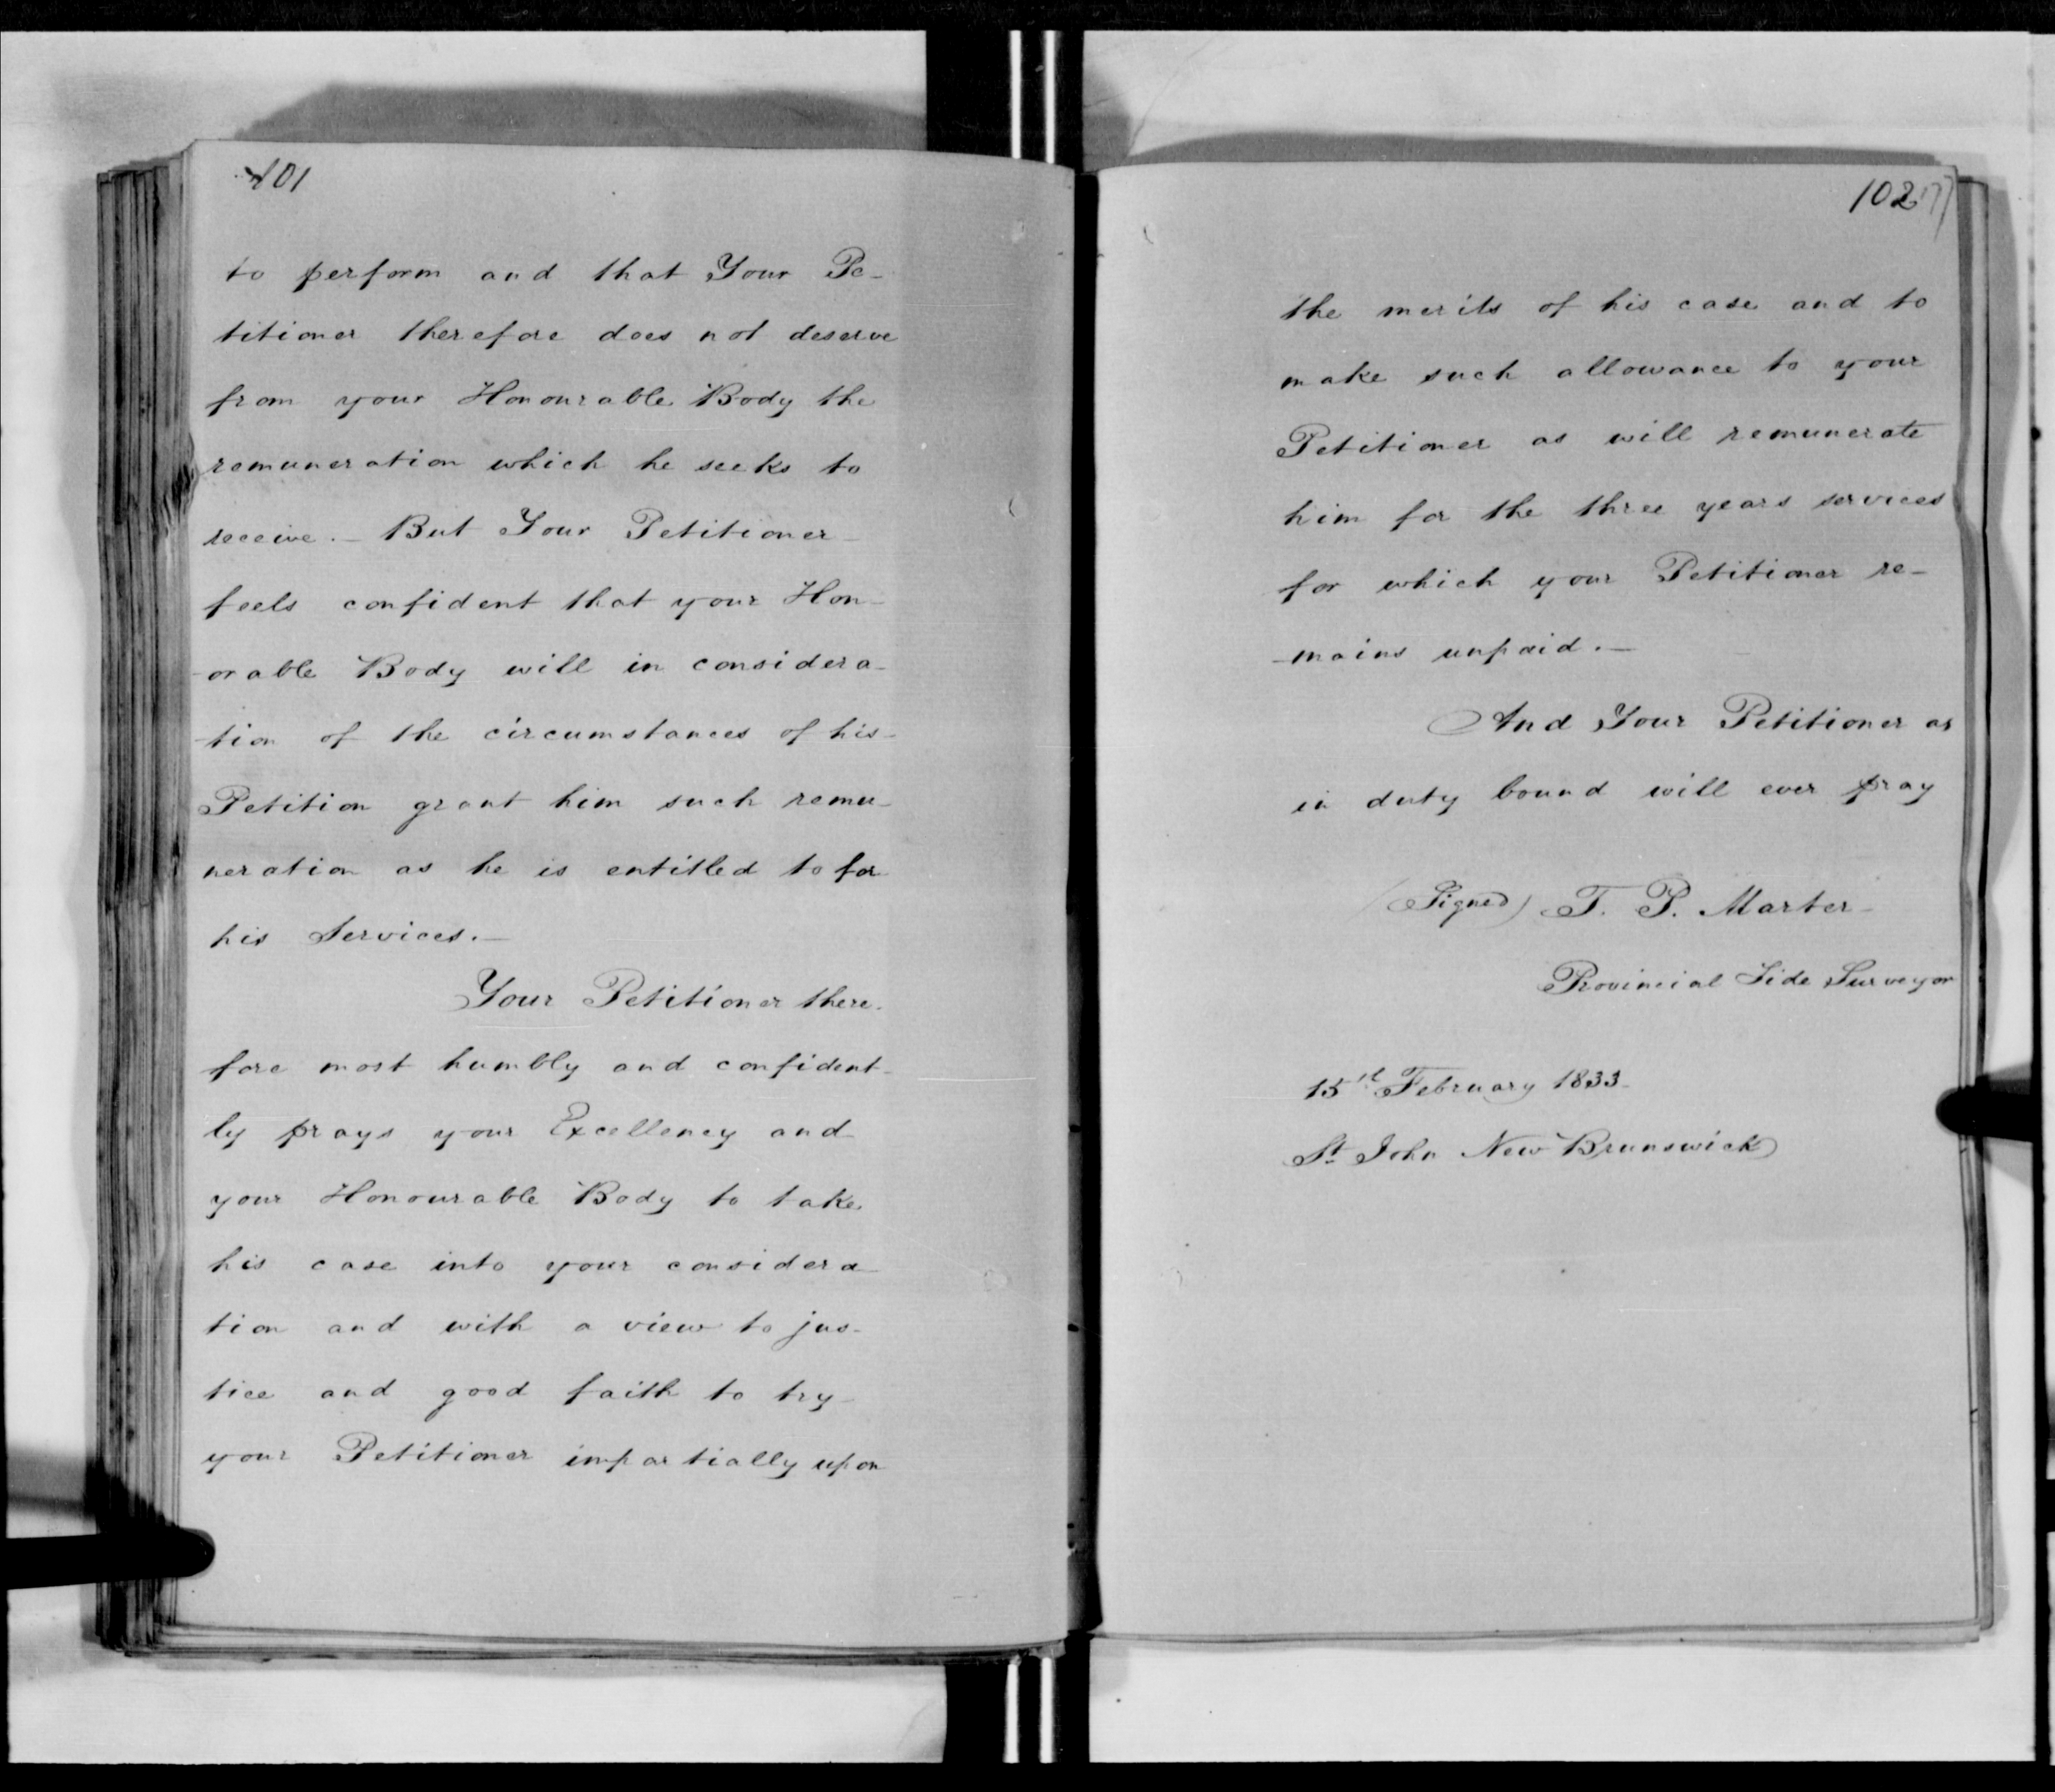 101
to perform and that Your Pe-
titioner therefore does not deserve
from your Honourable Body the
remuneration which he seeks to
receive.— But Your Petitioner
feels confident that your Hon-
-orable Body will in considera-
-tion of the circumstances of his
Petition grant him such remu-
neration as he is entitled to for
his Services.—
Your Petitioner there-
fore most humbly and confident-
ly prays your Excellency and
your Honourable Body to take
his case into your considera-
tion and with a view to jus-
tice and good faith to try
your Petitioner impartially upon
102
the merits of his case and to
make such allowance to your
Petitioner as will remunerate
him for the three years services
for which your Petitioner re-
-mains unpaid.—
And Your Petitioner as
in duty bound will ever pray
(Signed) T. P. Marter
Provincial Tide Surveyor
15th February 1833
St John New Brunswick